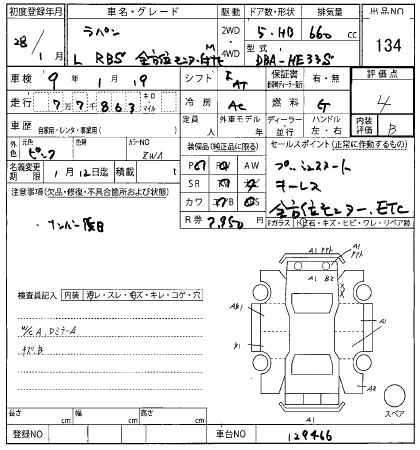 初度登録年月 車名・グレード 駆動 ドア数・形状 排気量 出品NO
28/1月 ラパン 2WD 5・HB 660 cc 134
L RBS 全方位モニター付 4WD 型式 DBA-HE33S
車検 9年1月19 シフト F AT 保証書 有・無 評価点
走行 77863 キロ マイル 冷房 AC 燃料 G 4
車歴 自家用・レンタ・事業用( ) 定員 人 外車モデル 年 ディーラー 並行 ハンドル 左・右 内装評価 B
外色 元色 ピンク 色替 カラーNO ZWA 装備品(純正品に限る) セールスポイント(正常に作動するもの)
名義変更期限 1月12日迄 積載 t PS PW AW プッシュスタート
注意事項(欠品・修復・不具合箇所および状態) SR ナビ キーレス
カワ TV 全方位モニター、ETC
ナンバー 後日 R券 7,950 円
Fガラス
検査員記入 内装 汚レ・スレ・キズ・キレ・コゲ・穴
W/C A, Dミラー A
キズ B
A1
A1
B2
A1
A1
A2
A1
スペア
長さ cm 幅 cm 高さ cm
登録NO 車台NO 129466